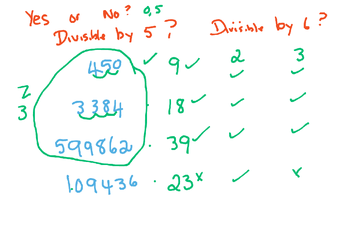 Yes or No? 0,5
Divisible by 5? Divisible by 6?
450 ✓ 9 ✓ 2 ✓ 3 ✓
2
3
3384 . 18 ✓ ✓ ✓
599862 . 39 ✓ ✓ ✓
109436 . 23 x ✓ x